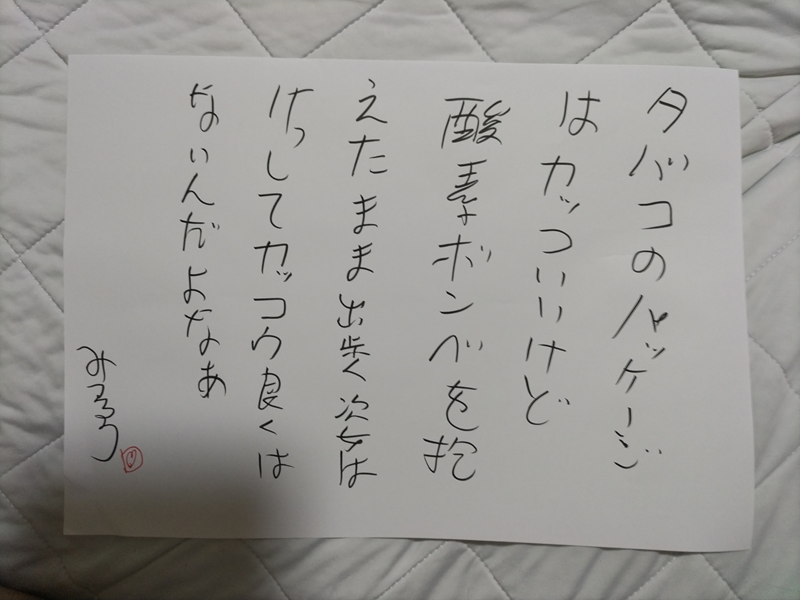 タバコのパッケージ
はカッコいいけど
酸素ボンベを抱
えたまま出歩く姿は
けっしてカッコウ良くは
ないんだよなあ
みつろう